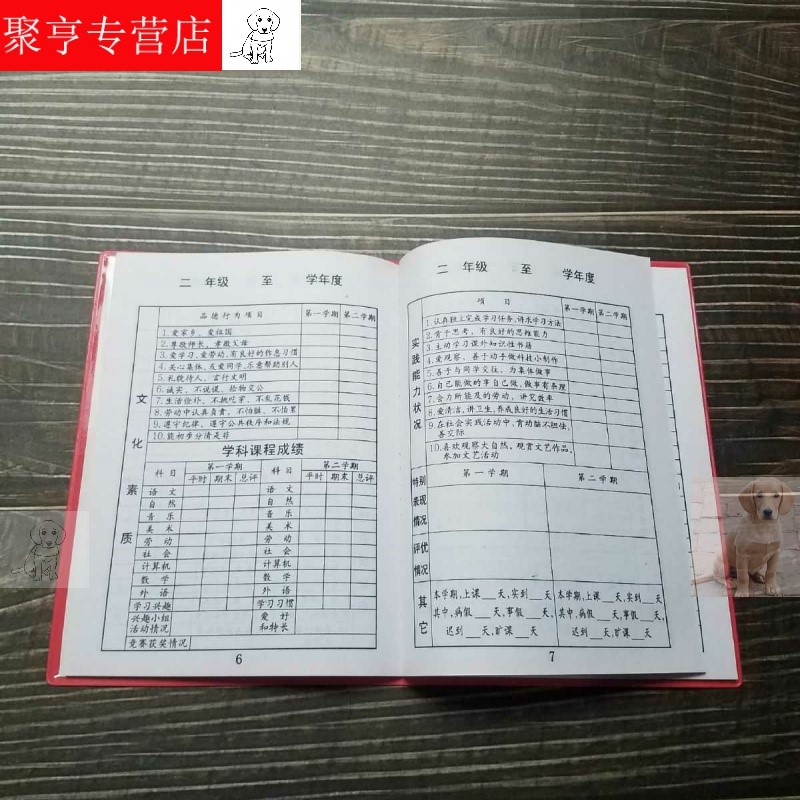 聚亨专营店
二 年级 至 学年度
品德行为项目 第一学期 第二学期
1.爱家乡、爱祖国
2.尊敬师长，孝敬父母
3.爱学习、爱劳动,有良好的作息习惯
4.关心集体、友爱同学,乐意帮助别人
5.礼貌待人、言行文明
6.诚实、不说谎、拾物交公
7.生活俭朴、不挑吃穿、不乱花钱
8.劳动中认真负责，不怕脏、不怕累
9.遵守纪律、遵守公共秩序和法规
10.能初步分清是非
文化素质
学科课程成绩
科目 第一学期 科目 第二学期
平时 期末 总评 平时 期末 总评
语文 语文
自然 自然
音乐 音乐
美术 美术
劳动 劳动
社会 社会
计算机 计算机
数学 数学
外语 外语
学习兴趣 学习习惯
兴趣小组活动情况 爱好和特长
竞赛获奖情况
6
二 年级 至 学年度
项目 第一学期 第二学期
实践能力状况
1.认真独立完成学习任务,讲求学习方法
2.肯于思考，有良好的思维能力
3.主动学习课外知识性书籍
4.爱观察、善于动手做科技小制作
5.善于与同学交往，为集体做事
6.自己能做的事自己做,做事有条理
7.会力所能及的劳动，讲究效率
8.爱清洁,讲卫生,养成良好的生活习惯
9.在社会实践活动中,肯动脑不胆怯、
善交际
10.喜欢观察大自然,观赏文艺作品,
参加文艺活动
特别表现情况 第一学期 第二学期
评优情况
其它
本学期,上课___天,实到___天 本学期,上课___天,实到___天
其中,病假___天,事假___天, 其中,病假___天,事假___天,
迟到___天,旷课___天 迟到___天,旷课___天
7